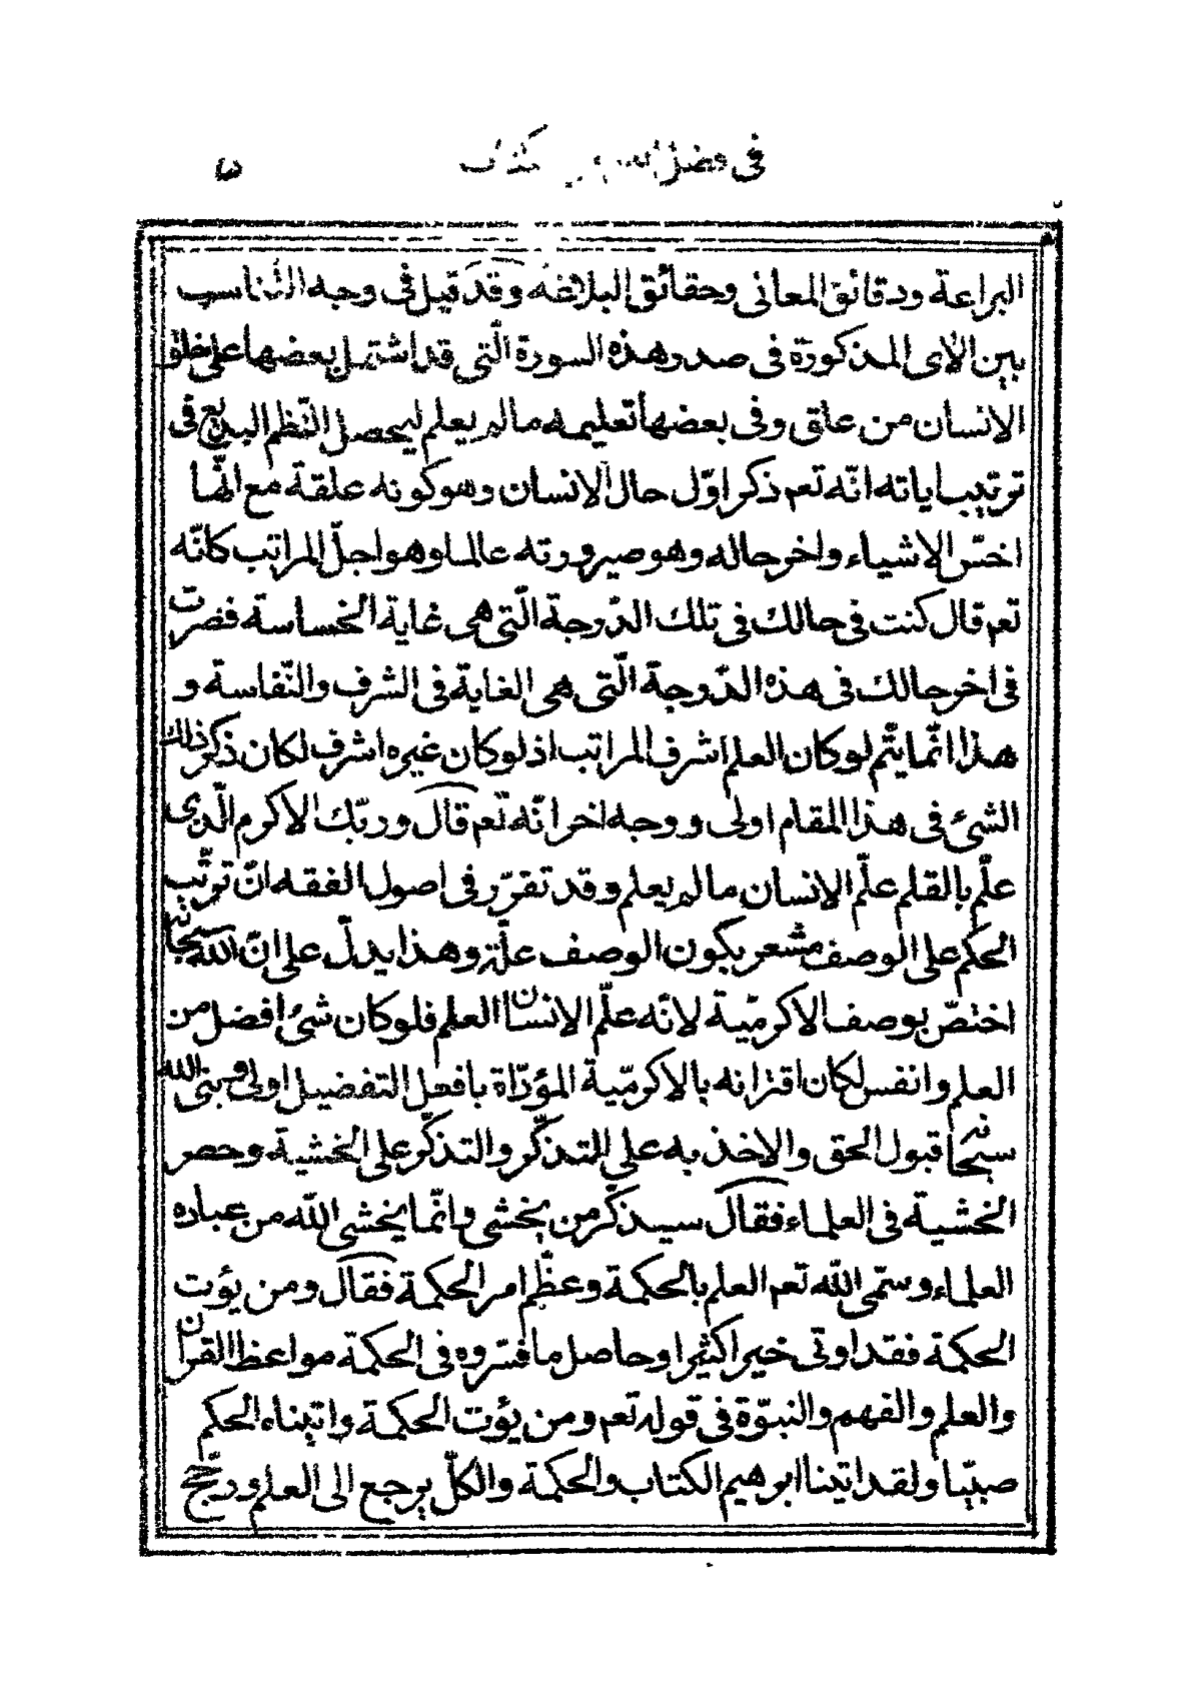 في فضل
٥
البراعة ودقائق المعاني وحقائق البلاغة وقد قيل في وجه التناسب
بين الاى المذكورة في صدر هذه السورة الّتى قد اشتمل بعضها على خلق
الانسان من علق وفى بعضها تعليمه ما لم يعلم ليحصل النّظم البديع في
ترتيب اياته انّه تعم ذكر اوّل حال الانسان وهو كونه علقة مع انّها
اخسّ الاشياء واخر حاله وهو صيرورته عالما وهو اجلّ المراتب كانّه
تعم قال كنت في حالك في تلك الدّرجة الّتى هى غاية الخساسة فصرت
في اخر حالك في هذه الدّرجة الّتى هى الغاية في الشرف والنّفاسة و
هذا انّما يتّم لو كان العلم اشرف المراتب اذ لو كان غيره اشرف لكان ذكر ذلك
الشئ في هذا المقام اولى ووجه اخر انّه تعم قال وربّك الاكرم الّذى
علّم بالقلم علّم الانسان ما لم يعلم وقد تقرّر في اصول الفقه انّ ترتّب
الحكم على الوصف مشعر بكون الوصف علّة وهذا يدلّ على انّ الله سبحانه
اختصّ بوصف الاكرميّة لانّه علّم الانسان العلم فلو كان شئ افضل من
العلم وانفس لكان اقترانه بالاكرميّة المؤدّاة بافعل التفضيل اولى وبنى الله
سبحانه قبول الحق والاخذ به على التذكّر والتذكّر على الخشية وحصر
الخشية في العلماء فقال سيذكّر من يخشى وانّما يخشى الله من عباده
العلماء وسمّى الله تعم العلم بالحكمة وعظّم امر الحكمة فقال ومن يؤت
الحكمة فقد اوتى خيرا كثيرا وحاصل ما فسّروه في الحكمة مواعظ القران
والعلم والفهم والنبوّة في قوله تعم ومن يؤت الحكمة واتيناه الحكم
صبيّا ولقد اتينا ابرهيم الكتاب والحكمة والكلّ يرجع الى العلم ورجّح